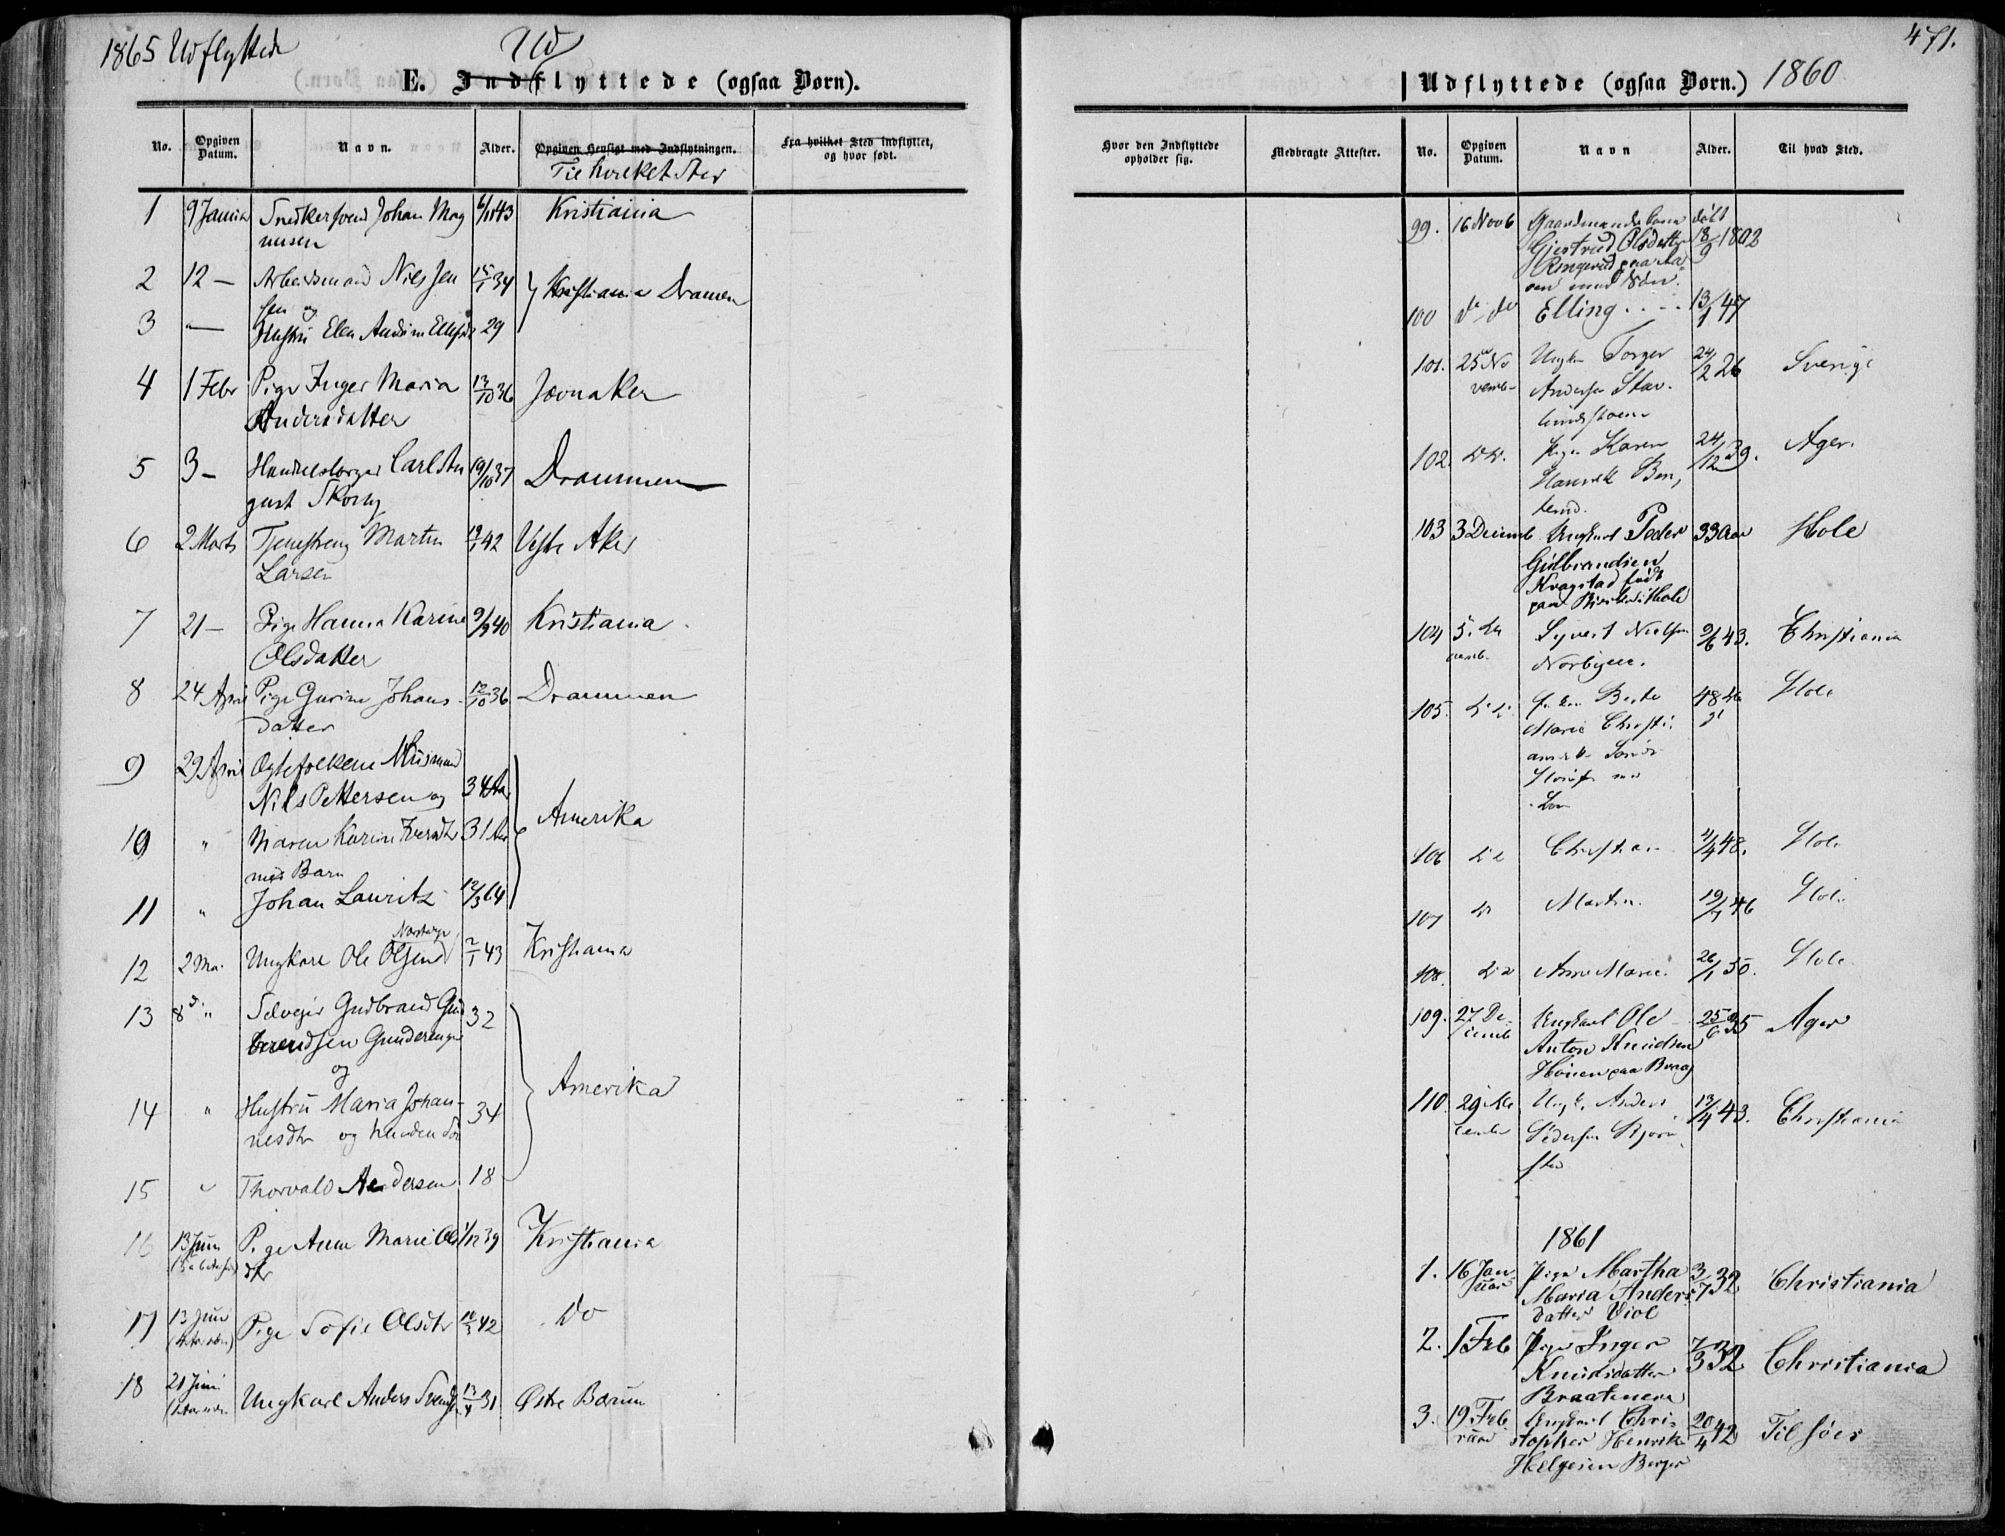 1865 Udflyttede
Ud
E. Indflyttede (ogsaa Børn).
No. Opgiven Datum. Navn. Alder. Opgiven Hensigt med Indflytningen. Fra hvilket Sted indflyttet, og hvor født.
Til hvilket Sted
1 9 Januar Snedkersvend Johan Mag 6/11 43 Kristiania
nusen
2 12 — Arbeidsmand Nils Jen 15/1 34 Kristiania Dramen
sen og
3 — Hustru Elen Andrine 29
4 1 Febr Pige Inger Maria 13/10 36 Jevnaker
Andersdatter
5 3 — Carl Au 19/10 37 Drammen
gust
6 2 Marts Tjenestdreng Martin 42 Vestre Aker
Larsen
7 21 — Pige Hanna Karine 9/9 40 Kristiania
Olsdatter
8 24 April Pige Gurine Johans 12/10 36 Drammen
datter
9 29 April Ægtefolkene Huusmand
Nils Pettersen og 34 Aar Amerika
10 " Maren Karine 31 Aar
med Barn
11 " Johan Lauritz 12/3 64
12 2 Mai Ungkarl Ole Olsen 2/1 43 Kristiania
13 8 d " Selveier Gudbrand Gud 32
brandsen Gunderengen
og
14 " Hustru Maria Johan- 34 Amerika
nesdtr og hendes Søn
15 " Thorvald Andersen 18
16 13 Juni Pige Anne Marie Ols 1/12 39 Kristiania
dtr
17 13 Juni Pige Sofie Olsdtr 42 Do
18 21 Juni Ungkarl Anders 13/4 31 Østre Bærum
471.
Udflyttede (ogsaa Børn.) 1860
Hvor den Indflyttede opholder sig. Medbragte Attester. No. Opgiven Datum. Navn Alder. Til hvad Sted.
99. 16 Novb Gaardmands døbt
Gjertrud Olsdatter 18/9 1802
Ringerud paa Aa
sen med Søn.
100 do do Elling . . . . 13/1 47
101. 25 No Ungk Torger 24/2 26 Sverige
vemb Andersen
102. do. Pige Karen 24/12 39. Ager.
103 3 Decemb Ungkarl Peder 33 Aar Hole
Gulbrandsen
Kragstad født
paa i Hole
104 5. De Syvert Nielsen 9/6 43. Christiania
cemb. Norbyen.
105. do Berte 48 Hole
Marie Christi
106 do Christian 1/4 48. Hole
107 do Martin. 19/7 46 Hole
108. do Anne Marie. 26/1 50. Hole
109. 27 De Ungkarl Ole 25/6 35 Ager
cemb Anton Knudsen
Hønen paa Braag
110. 29 De Ungk. Anders 13/4 43. Christiania
cember Pedersen
1861
1. 16 Jan Pige Martha 3/7 32 Christiania
uar Maria Anders
datter Viol
2. 1 Feb Pige Inger 7/3 32 Christiania
Knudsdatter
Braatenene
3. 19 Feb Ungkarl Chris 20/4 42 Til søes
ruar stopher Henrik
Helgesen Berger